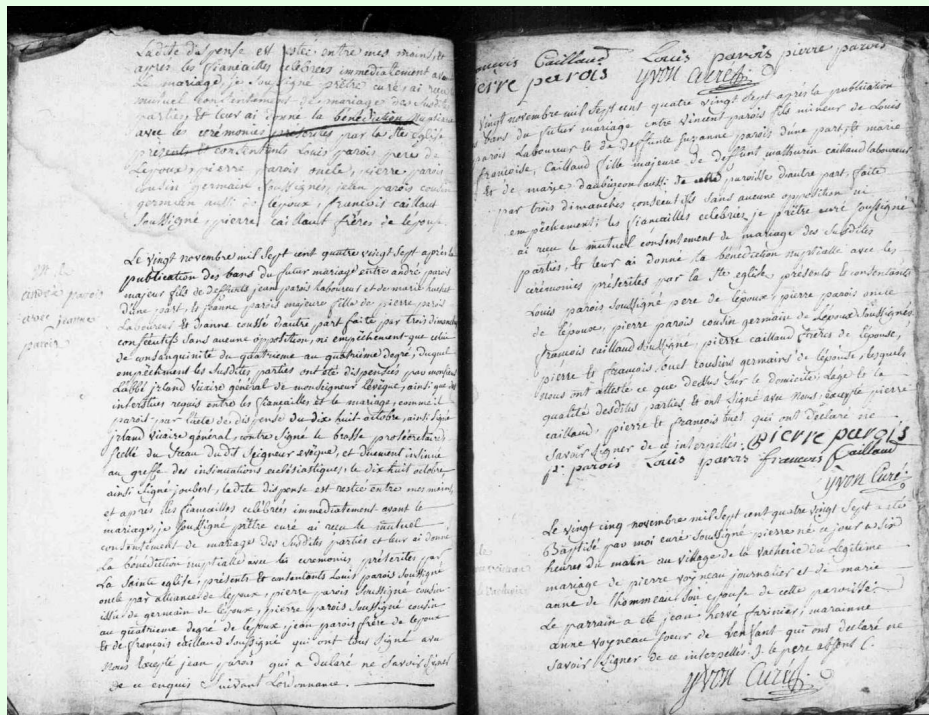 Ladite dispense est restée entre mes mains, et
après les fiancailles celebrées immediatement avant
Le mariage, je soussigné prêtre curé ai recu
mutuel consentement de mariage des susdite
parties et leur ai donné la bénédiction nuptiale
avec les ceremonies prescrites par la Ste église
présents et consentants Louis parois pere de
L'epoux, pierre parois oncle, pierre parois
cousin germain soussignés, jean parois cousin
germain aussi de lepoux, francois caillaut
soussigné, pierre caillaut frères de lepouse.
andré parois
avec jeanne
parois
Le vingt novembre mil sept cent quatre vingt sept après la
publication des bans du futur mariage entre andré parois
majeur fils de deffunts jean parois laboureur et de marie
d'une part, et jeanne parois majeure fille de pierre parois
Laboureur et d'anne cousse d'autre part faite par trois dimanches
consécutifs sans aucune opposition, ni empêchement que celui
de consanguinité du quatrieme au quatrieme degré, duquel
empêchement les susdites parties ont été dispensées par monsieur
L'abbé jrland vicaire général de monseigneur L'evêque, ainsi que des
interstices requis entre les fiancailles et le mariage, comme il
paroit par l'acte de dispense du dix huit octobre, ainsi signé
jrland vicaire général, contre signé le brasse prosécretaire,
scellé du sceau dudit seigneur evêque, et duement insinué
au greffe des insinuations ecclésiastiques, le dix huit octobre
ainsi signé joubert, ladite dispense est restée entre mes mains
et après les fiancailles celebrées immediatement avant le
mariage, je soussigné prêtre curé ai recu le mutuel
consentement de mariage des susdites parties et leur ai donné
La bénédiction nuptialle avec les ceremonies prescrites par
La Sainte eglise, présents et consentants Louis parois soussigné
oncle par alliance de lepoux, pierre parois soussigné cousin
issu de germain de lepoux, pierre parois soussigné cousin
au quatrieme degré de lepoux jean parois frère de lepoux
et de francois caillaud soussigné qui ont tous signé avec
nous excepté jean parois qui a declaré ne savoir signer
de ce enquis suivant Lordonnance.
francois Caillaud Louis parois pierre parois
pierre parois yvon curé
vingt novembre mil sept cent quatre vingt sept après la publication
des bans du futur mariage entre vincent parois fils mineur de Louis
parois Laboureur et de deffunte suzanne parois d'une part, et marie
francoise Caillaud fille majeure de deffunt mathurin caillaud laboureur
et de marie daubigeon aussi de cette paroisse d'autre part, faite
par trois dimanches consecutifs sans aucune opposition ni
empêchement; les fiancailles celebrées, je prêtre curé soussigné
ai recu le mutuel consentement de mariage des susdites
parties, et leur ai donné la bénédiction nuptialle avec les
cérémonies prescrites par la Ste eglise, présents et consentants
Louis parois soussigné pere de lépoux, pierre parois oncle
de lépoux, pierre parois cousin germain de Lepoux soussignés
francois caillaud soussigné, pierre caillaud frères de lépouse,
pierre et francois buet cousins germains de lépouse, lesquels
nous ont attesté ce que dessus sur le domicile L'age et la
qualité desdites parties et ont signé avec nous, excepté pierre
caillaud, pierre et francois buet qui ont declaré ne
savoir signer de ce interpellés. pierre parois
p. parois Louis parois françois Caillaud
yvon Curé
Le vingt cinq novembre mil sept cent quatre vingt sept a été
Baptisé par moi curé soussigné pierre né ce jour
heures du matin au village de la vacherie du Legitime
mariage de pierre voyneau journalier et de marie
anne de Lhommeau son epouse de cette paroisse.
Le parrain a été jean hervé farinier, marainne
anne voyneau soeur de L'enfant qui ont declaré ne
savoir signer de ce interpellés. le pere absent
yvon Curé